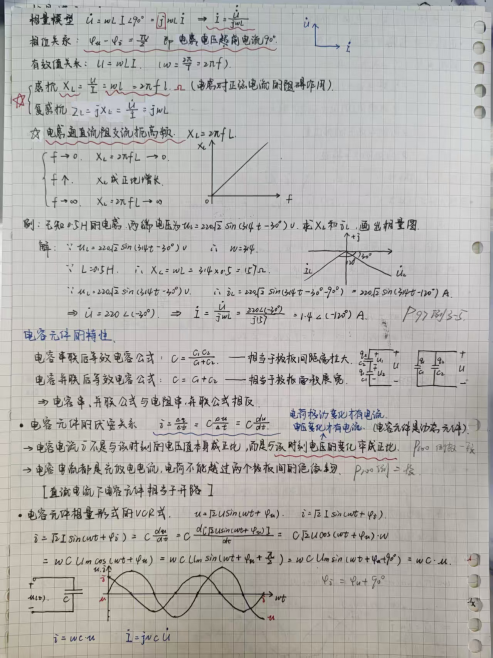 相量模型 U̇=ωLI∠90°=jωLİ ⇒ İ=U̇/jωL
相位关系: φu-φi=π/2 即电感电压超前电流90°
有效值关系: U=ωLI. (ω=2π/T=2πf)
感抗 XL=U/I=ωL=2πfL Ω (电感对正弦电流的阻碍作用)
复感抗 ZL=jXL=U̇/İ=jωL
U̇ İ
☆ 电感通直流阻交流扼高频. XL=2πfL
f→0. XL=2πfL→0.
f↑. XL成正比增长.
f→∞. XL=2πfL→∞
XL 0 f
例: 已知0.5H的电感,两端电压为uL=220√2 sin(314t-30°)V. 求XL和iL,画出相量图.
解: ∵uL=220√2 sin(314t-30°)V ∴ω=314.
∵L=0.5H. ∴XL=ωL=314×0.5=157Ω.
+j
İL U̇u
∵uL=220√2 sin(314t-30°)V. ∴iL=220√2 sin(314t-30°-90°)=220√2 sin(314t-120°)A.
⇒ U̇=220∠(-30°) ⇒ İ=U̇/jωL=220∠(-30°)/j157=1.4∠(-120°)A.
P97例3-5
电容元件的特性.
电容串联后等效电容公式: C=C1C2/(C1+C2). ——相当于极板间距离拉大.
电容并联后等效电容公式: C=C1+C2. ——相当于极板面积展宽.
⇒ 电容串,并联公式与电阻串,并联公式相反
电荷的变化才有电流.
• 电容元件的伏安关系 i=Δq/Δt=CΔu/Δt=C du/dt 电压变化才有电流. (电容元件是动态元件)
→电容电流i不是与该时刻的电压值本身成正比,而是与该时刻电压的变化率成正比.
→电容串联都是充放电电流,电荷不能越过两个极板间的绝缘
[直流电流下电容元件相当于开路]
• 电容元件相量形式的VCR式. u=√2Usin(ωt+φu). i=√2Isin(ωt+φi).
i=√2Isin(ωt+φi)=C du/dt=C d[√2Usin(ωt+φu)]/dt=C√2Ucos(ωt+φu)·ω
=ωCUmcos(ωt+φu)=ωCUmsin(ωt+φu+π/2)=ωCUmsin(ωt+φu+90°)=ωC·u.
φi=φu+90°
u(t). C
u,i ωt
i=ωC·u İ=jωCU̇